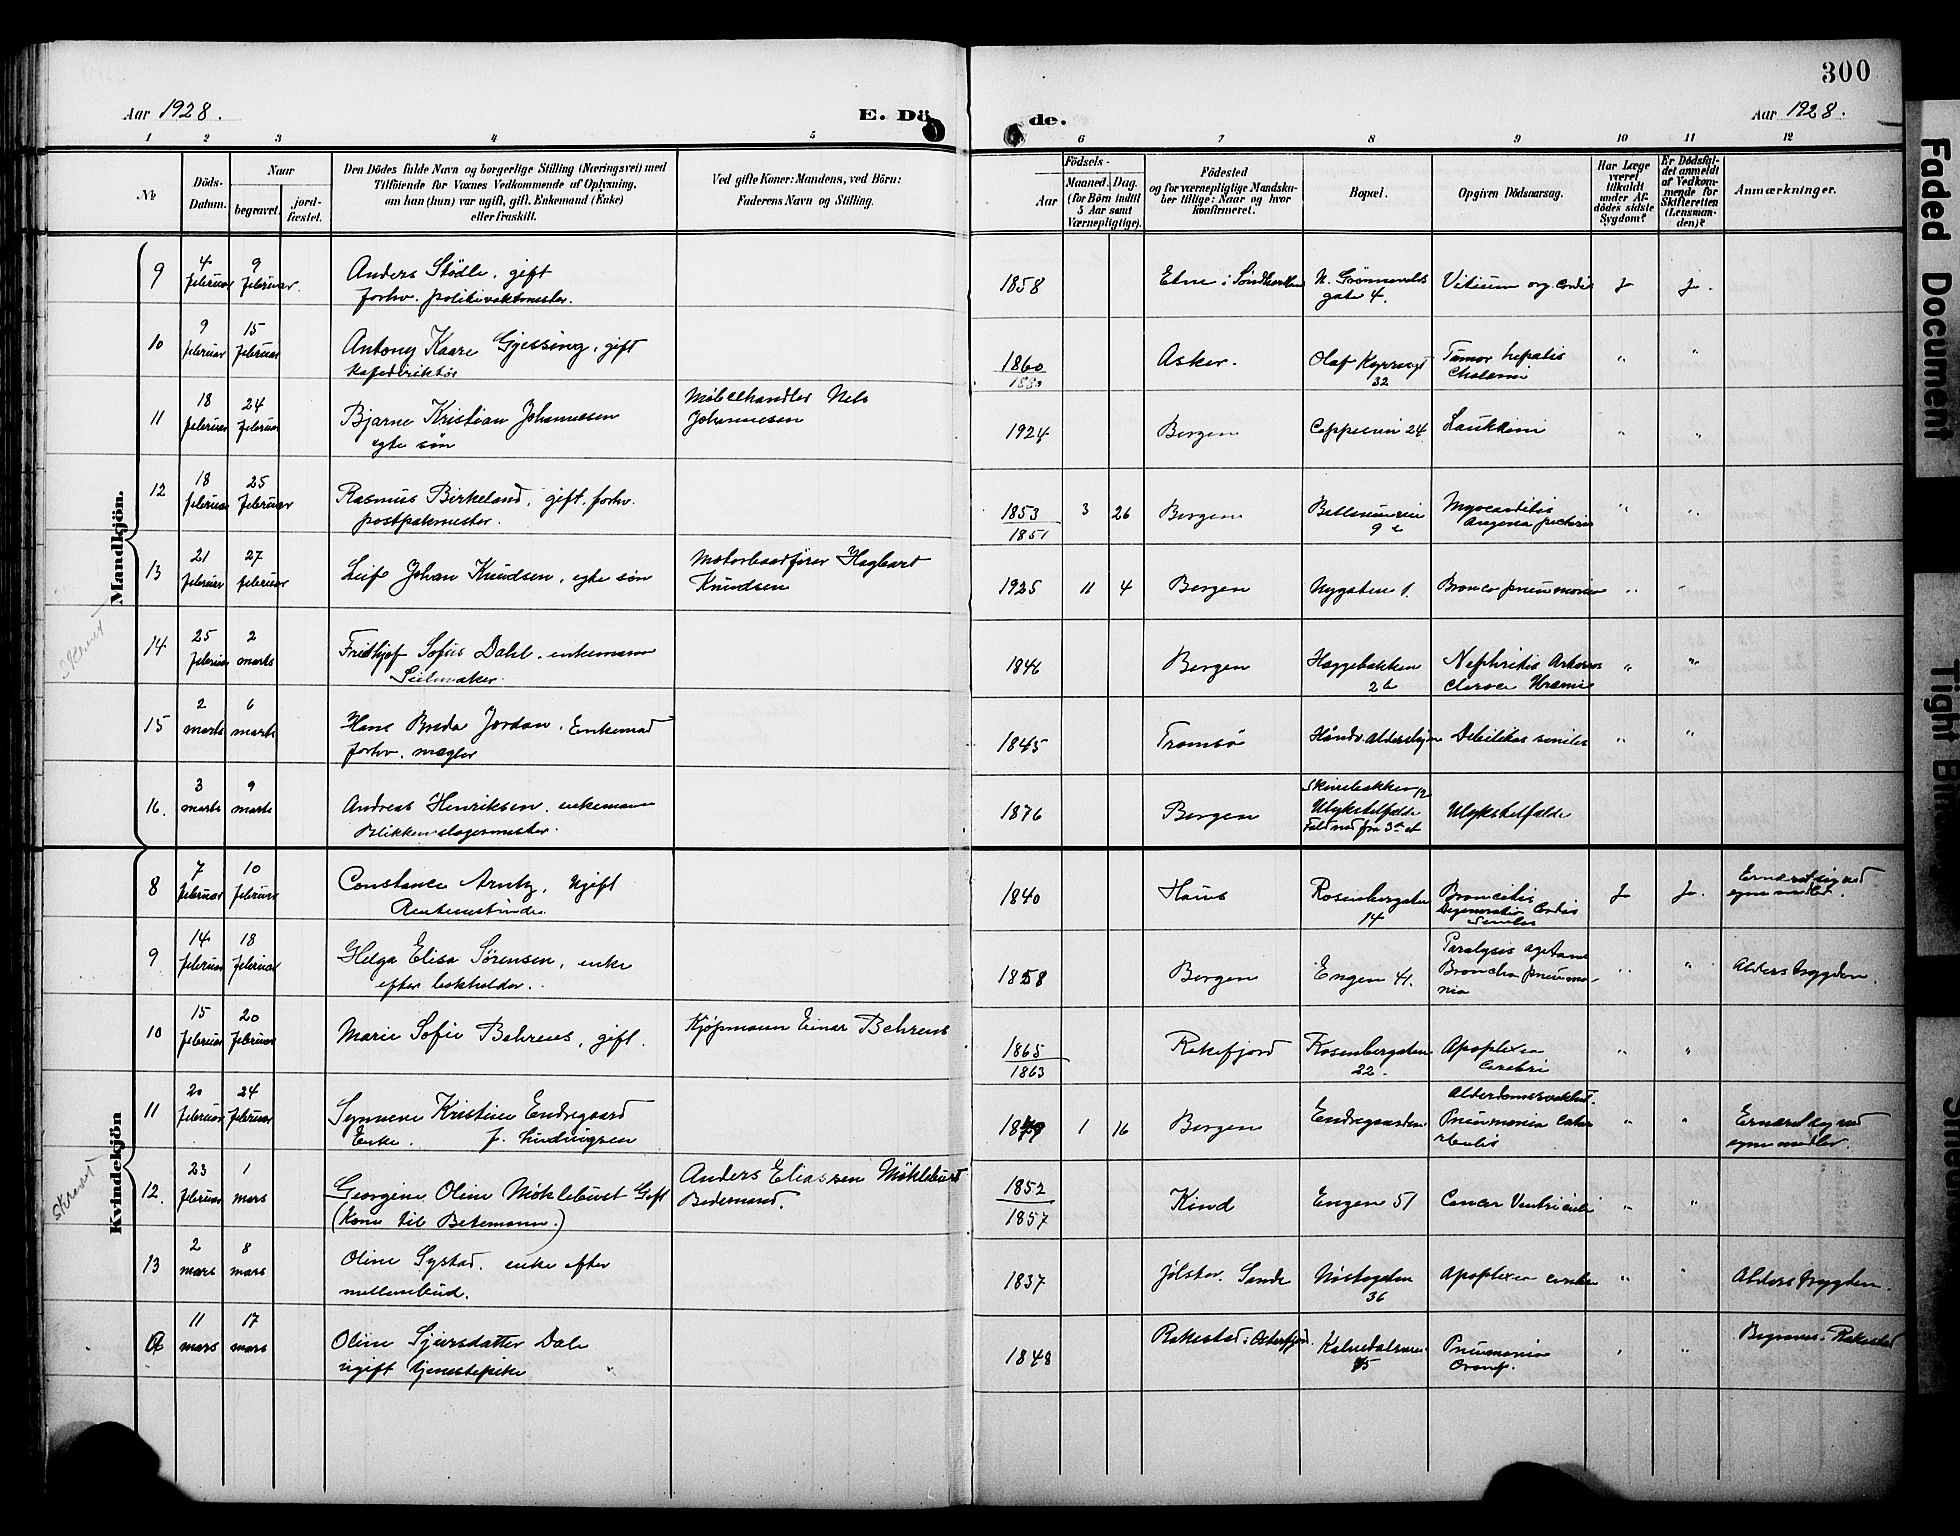 300
Aar 1928.
E. Dö
de.
Aar 1928.
1 2 3 4 5 6 7 8 9 10 11 12
№
Döds-
Datum.
Naar
begravet.
jord-
fæstet.
Den Dödes fulde Navn og borgerlige Stilling (Næringsvei) med
Tilföiende for Voxnes Vedkommende af Oplysning,
om han (hun) var ugift, gift, Enkemand (Enke)
eller fraskilt.
Ved gifte Koner: Mandens, ved Börn:
Faderens Navn og Stilling.
Födsels-
Aar
Maaned. Dag.
(for Börn indtil
5 Aar samt
Værnepligtige).
Födested
og for værnepligtige Mandska-
ber tillige: Naar og hvor
konfirmeret.
Bopæl.
Opgiven Dödsaarsag.
Har Læge
været
tilkaldt
under Af-
dödes sidste
Sygdom?
Er Dödsfal-
det anmeldt
af Vedkom-
mende for
Skifteretten
(Lensman-
den)?
Anmærkninger.
Mandkjön.
9
4 februar
9 februar
Anders Stødle, gift
forhv. politivaktmester.
1858
Etne i Søndhordland
gate 4.
Vitium org. cordis
J
J.
10
9 februar
15 februar
Antony Kaare Gjessing, gift
1860
Asker.
32
Tumor hepatis
"
"
11
18 februar
24 februar
Bjarne Kristian Johannessen
egte søn
Møbelhandler Nels
Johannesen
1924
Bergen
24
"
"
12
18 februar
25 februar
Rasmus Birkeland, gift, forhv.
postpakmester.
1853
1851
3
26
Bergen
Myocarditis
Angina pectoris
"
"
13
21 februar
27 februar
Leif Johan Knudsen, egte søn
Motorbaadfører Hagbart
Knudsen
1925
11
4
Bergen
Nygaten 1.
Bronco pneumonia
"
"
14
25 februar
2 marts
Fridthjof Sofus Dahl, enkemann
Seilmaker.
1846
Bergen
Haggebakken
26
Nephritis
Uræmie
"
"
15
2 marts
6 marts
Hans Breda Jordan, Enkemad
forhv. mægler
1845
Tromsø
Debilitas senilis
"
"
16.
3 marts
9 marts
Andreas Henriksen, enkemann
Blikkenslagermester.
1876
Bergen
Ulykstilfælde
Fald ned fra 3die et
Ulykstilfælde
Kvindekjön
8
7 februar
10 februar
Constance Arntz, Ugift
1840
Haus
Rosenbergaten
14
Broncitis
Degeneratio Cordis
senilis
J
J.
Ernæret sig ved
egne midler.
9
14 februar
18 februar
Helga Elisa Sørensen, enke
efter bokholder.
1858
Bergen
Engen 41.
Paralysis agitans
Broncho pneumo-
nia
"
"
Alders trygden
10
15 februar
20 februar
Marie Sofie Behrens, gift.
Kjøpmann Einar Behrens
1865
1863
Rosenbergaten
22.
Apoplexia
cerebri
"
"
11
20 februar
24 februar
Synneve Kristine Endregaard
Enke. f. Ludvigsen
1
16
Bergen
Endregaarden
Pneumonia
"
"
Ernæret sig ved
egne midler.
12.
23 februar
1 mars
Georgine Oline Møklebust Gift
(Kone til Betemann.)
Anders Eliassen Møklebust
Bedemand.
1852
1857
Kind
Engen 51
Cancer Ventriculi
"
"
13
2 mars
8 mars
Oline Systad, enke efter
1837
Jølster. Sande
Nøstegaten
36
Apoplexia cerebri
"
"
Alders trygden.
11 mars
17 mars
Oline Sjursdatter Dale
ugift tjenestepike
1848
Kalvedalsveien
Pneumonia
Croup.
"
"
Faded Document
Tight Bi